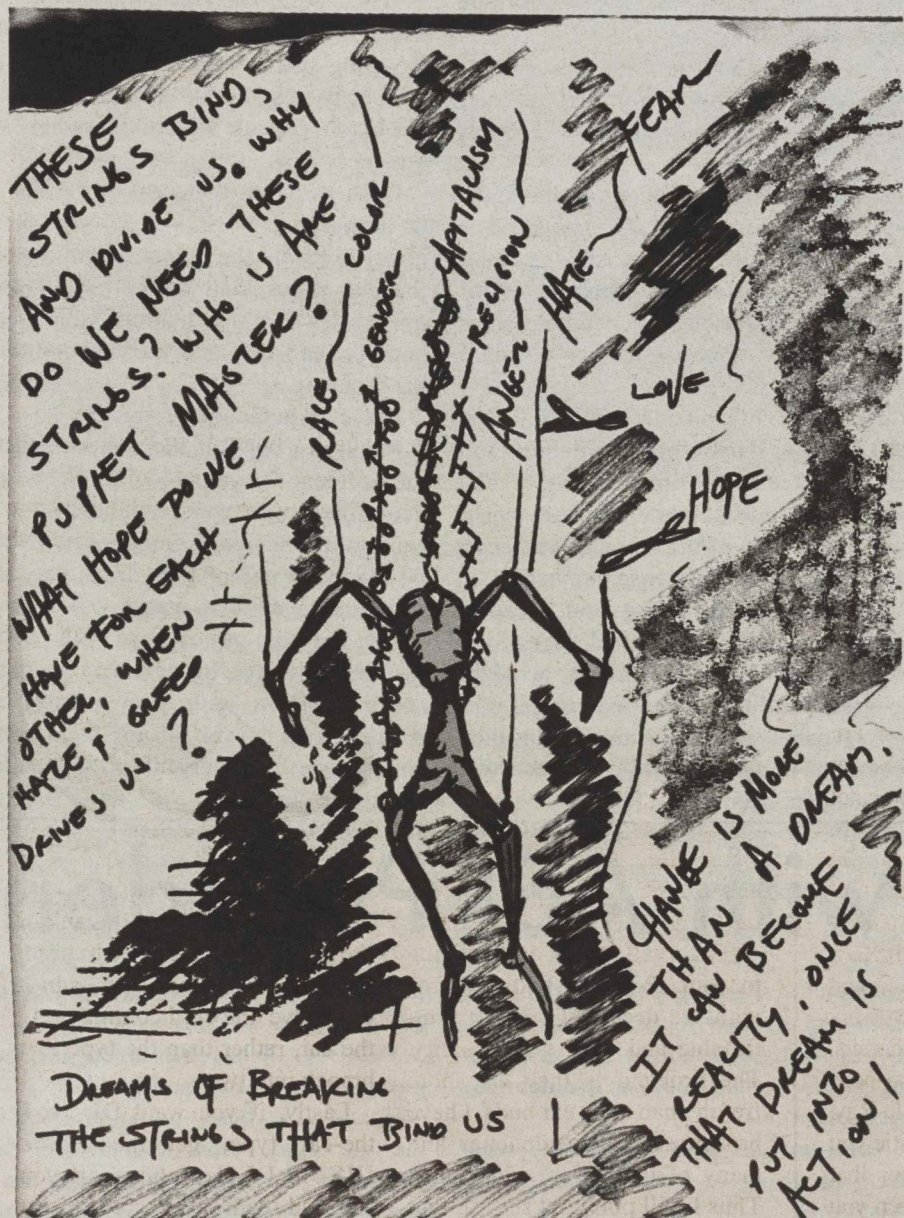 THESE
STRINGS BIND,
AND DIVIDE US. WHY
DO WE NEED THESE
STRINGS? WHO IS ARE
PUPPET MASTER?
WHAT HOPE DO WE
HAVE FOR EACH
OTHER, WHEN
HATE & GREED
DRIVES US?
RACE
COLOR
GENDER
CAPITALISM
RELIGION
ANGER
HATE
FEAR
LOVE
HOPE
CHANGE IS MORE
THAN A DREAM.
IT CAN BECOME
REALITY. ONCE
THAT DREAM IS
PUT INTO
ACTION!
DREAMS OF BREAKING
THE STRINGS THAT BIND US!